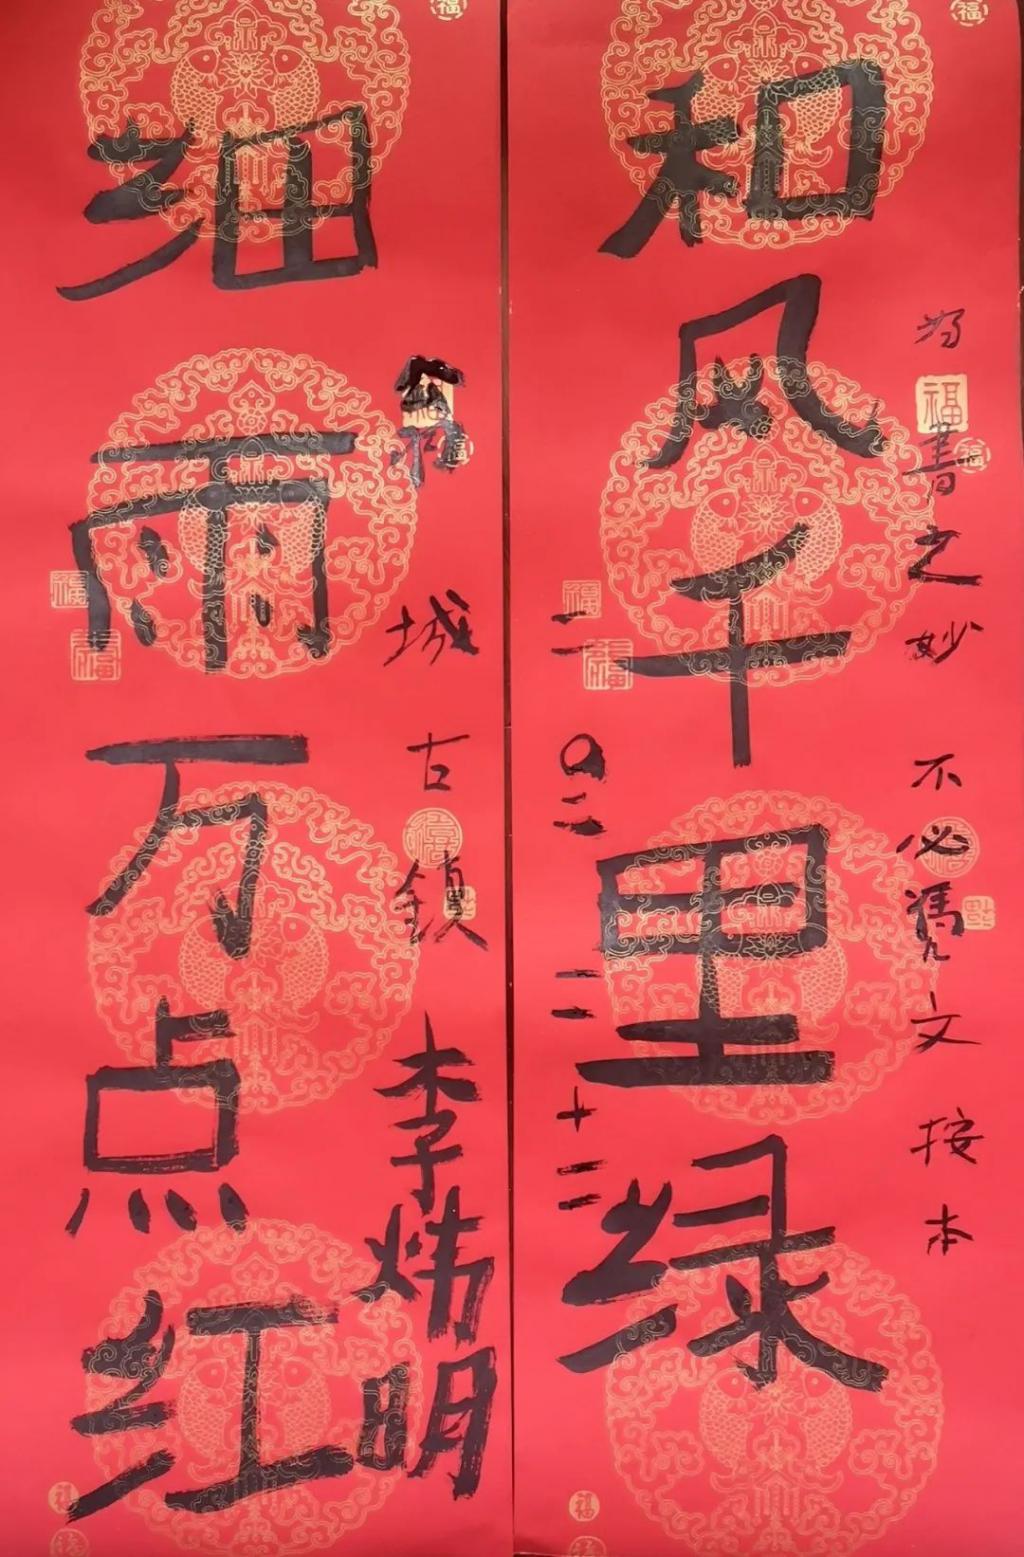 为書之妙不必凭文按本
和风千里绿
二〇二二十二
城古鎖李炜明
细雨万点红